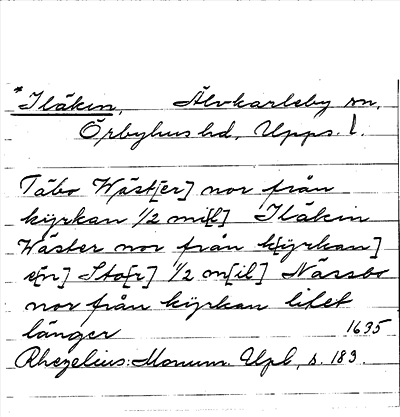 *Iläkin, Älvkarleby sn,
Örbyhus hd, Upps. l.
Täbo Wäst[er] nor från
kyrkan 1/2 mi[l] Iläkin
Wäster nor från k[yrkan]
e[n] Sto[r] 1/2 m[il] Nässbo
nor från kyrkan litet
länger 1635
Rhezelius: Monum. Upl, s. 183.